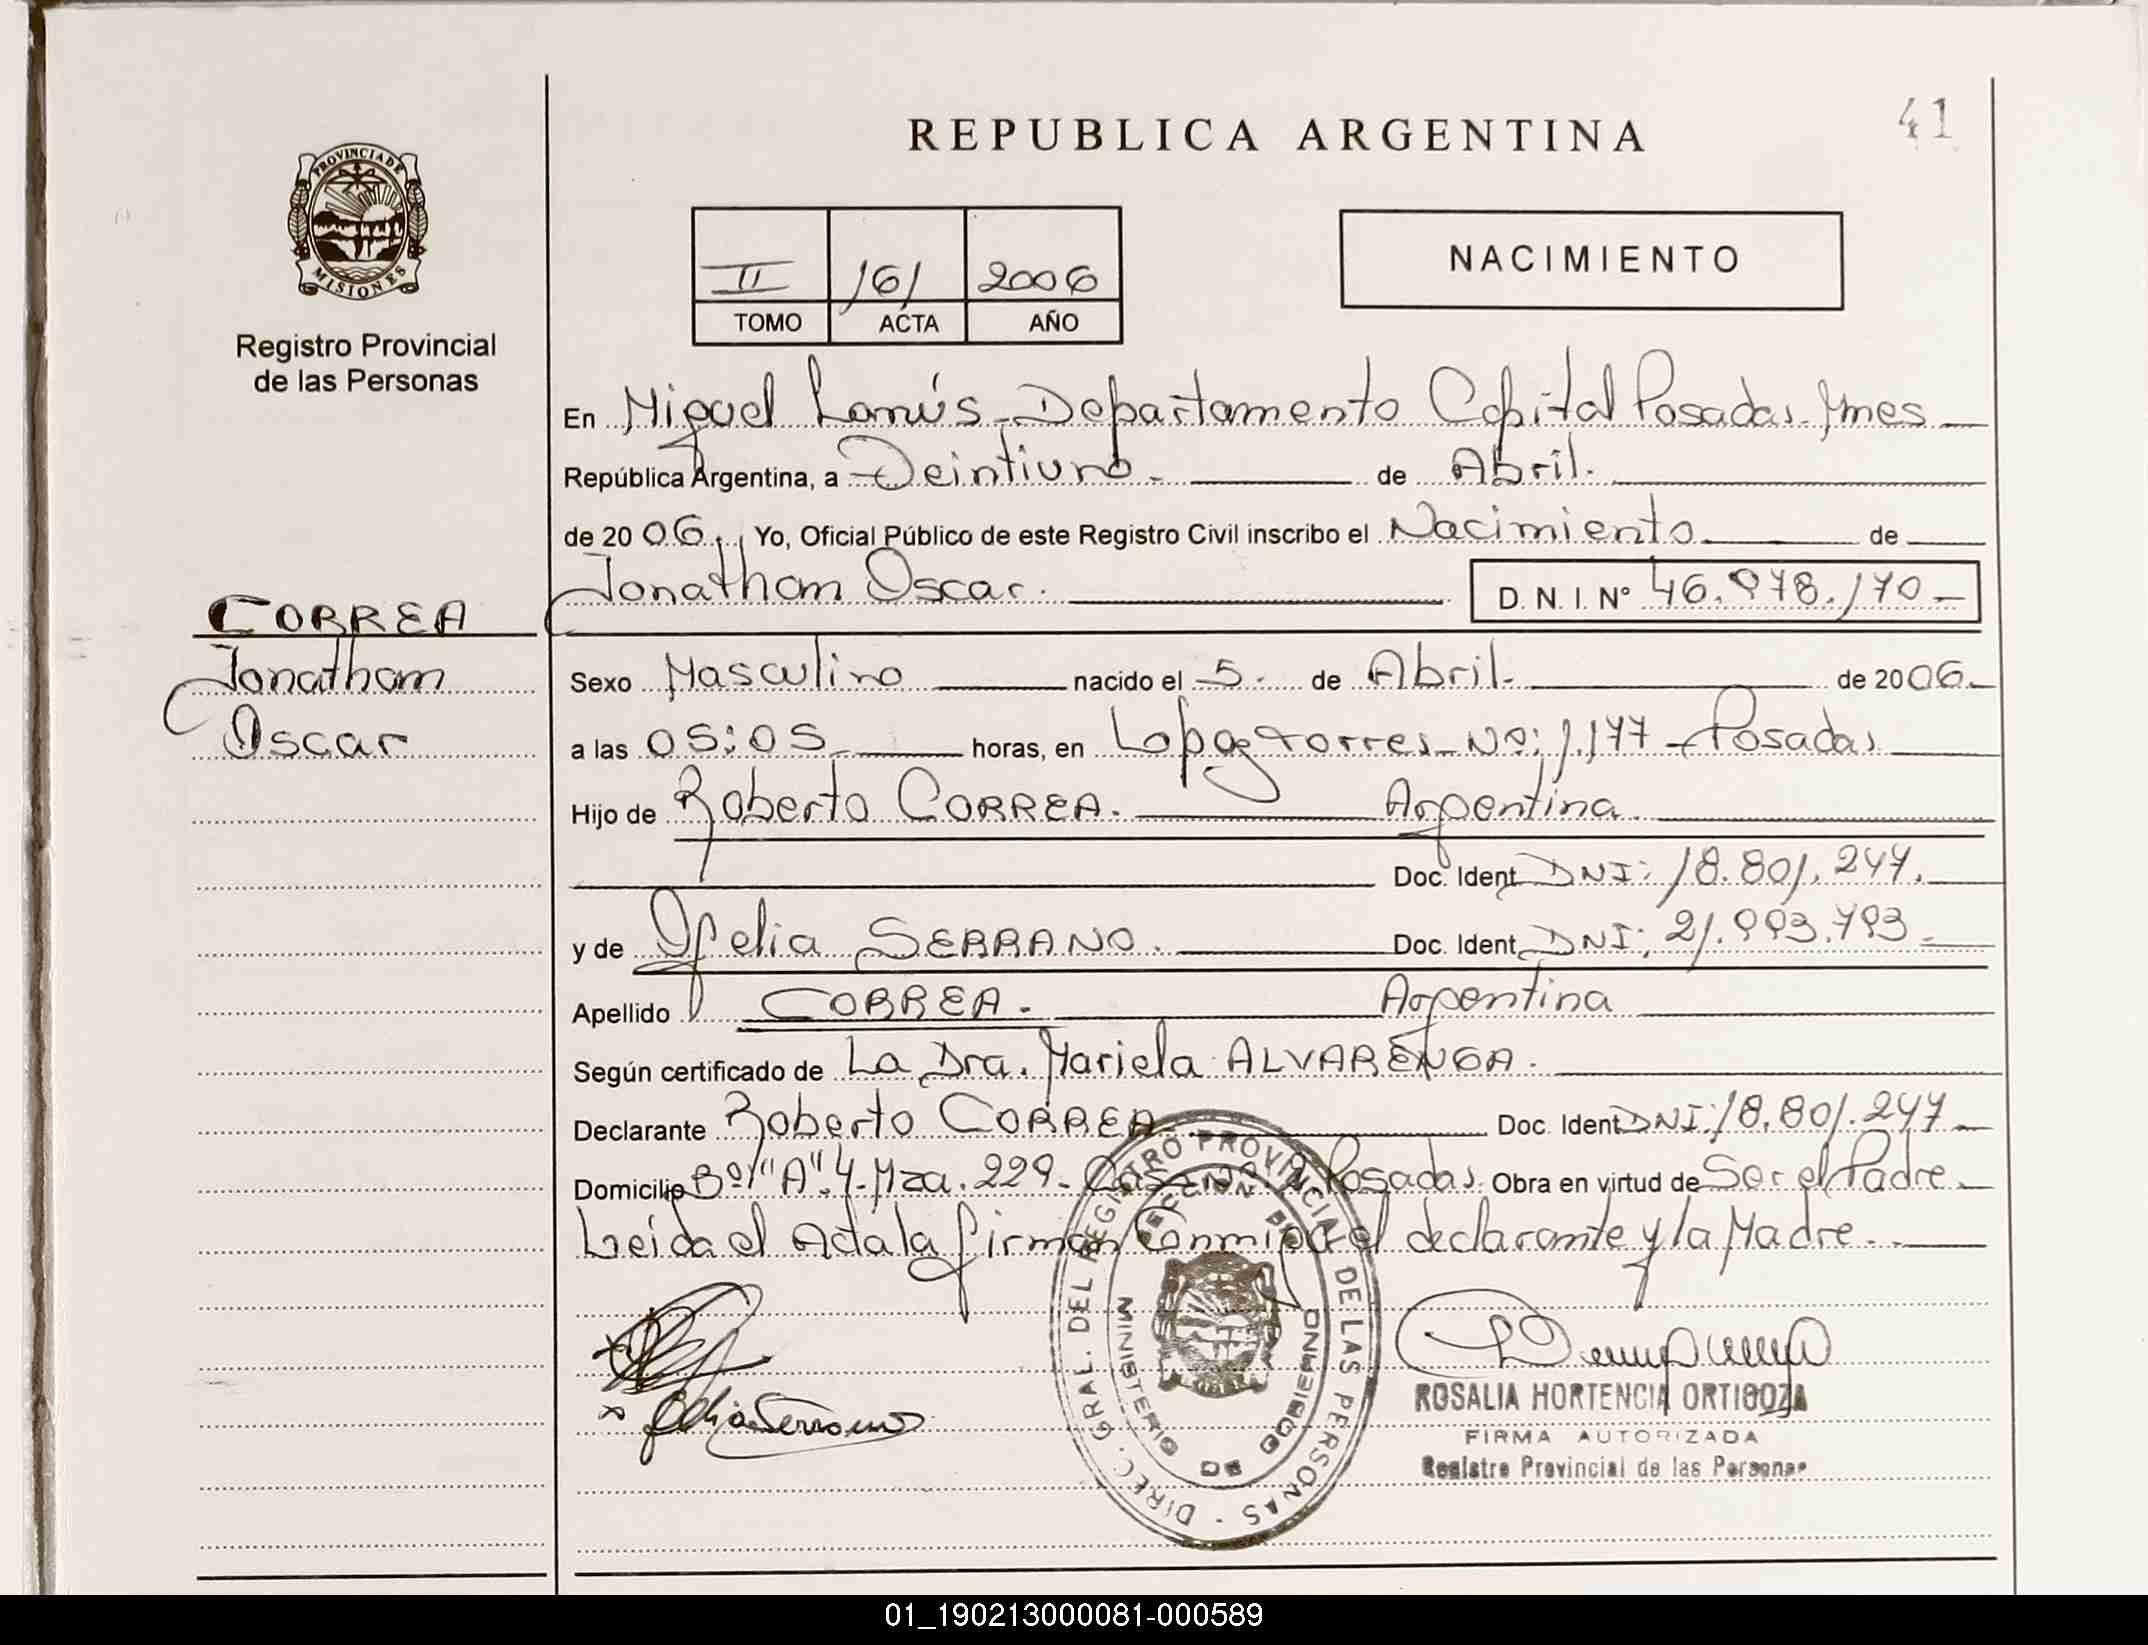 41
REPUBLICA ARGENTINA
PROVINCIA DE
MISIONES
Registro Provincial
de las Personas
II 161 2006
TOMO ACTA AÑO
NACIMIENTO
En Miguel Lanús - Departamento Capital Posadas - Mnes
República Argentina, a Veintiuno. de Abril.
de 2006. Yo, Oficial Público de este Registro Civil inscribo el Nacimiento de
Jonatham Oscar. D. N. I. Nº 46.978.170-
CORREA
Jonatham
Oscar
Sexo Masculino nacido el 5. de Abril. de 2006.
a las 05:05 horas, en Lopez Torres Nº: 1.177 - Posadas
Hijo de Roberto CORREA. Argentina.
Doc. Ident DNI: 18.801.247.
y de Ofelia SERRANO. Doc. Ident DNI: 21.993.793.
Apellido CORREA. Argentina
Según certificado de La Dra. Mariela ALVARENGA.
Declarante Roberto CORREA Doc. Ident DNI: 18.801.247
Domicilio Bº "A".4-Mza. 229- Posadas. Obra en virtud de Ser el Padre
Leida el Acta la firman Conmigo el declarante y la Madre.
DIREC. GRAL. DEL REGISTRO PROVINCIAL DE LAS PERSONAS
MINISTERIO DE GOBIERNO
Ofelia Serrano
ROSALIA HORTENCIA ORTIGOZA
FIRMA AUTORIZADA
Registro Provincial de las Personas
01_190213000081-000589